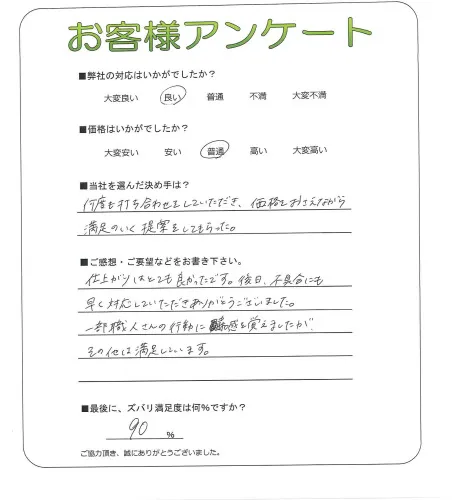 お客様アンケート
■弊社の対応はいかがでしたか？
大変良い 良い 普通 不満 大変不満
■価格はいかがでしたか？
大変安い 安い 普通 高い 大変高い
■当社を選んだ決め手は？
何度も打ち合わせをしていただき、価格をおさえながら
満足のいく提案をしてもらった。
■ご感想・ご要望などをお書き下さい。
仕上がりはとても良かったです。後日、不具合にも
早く対応していただきありがとうございました。
一部職人さんの行動に 感を覚えましたが
その他は満足しています。
■最後に、ズバリ満足度は何%ですか？
90 %
ご協力頂き、誠にありがとうございました。